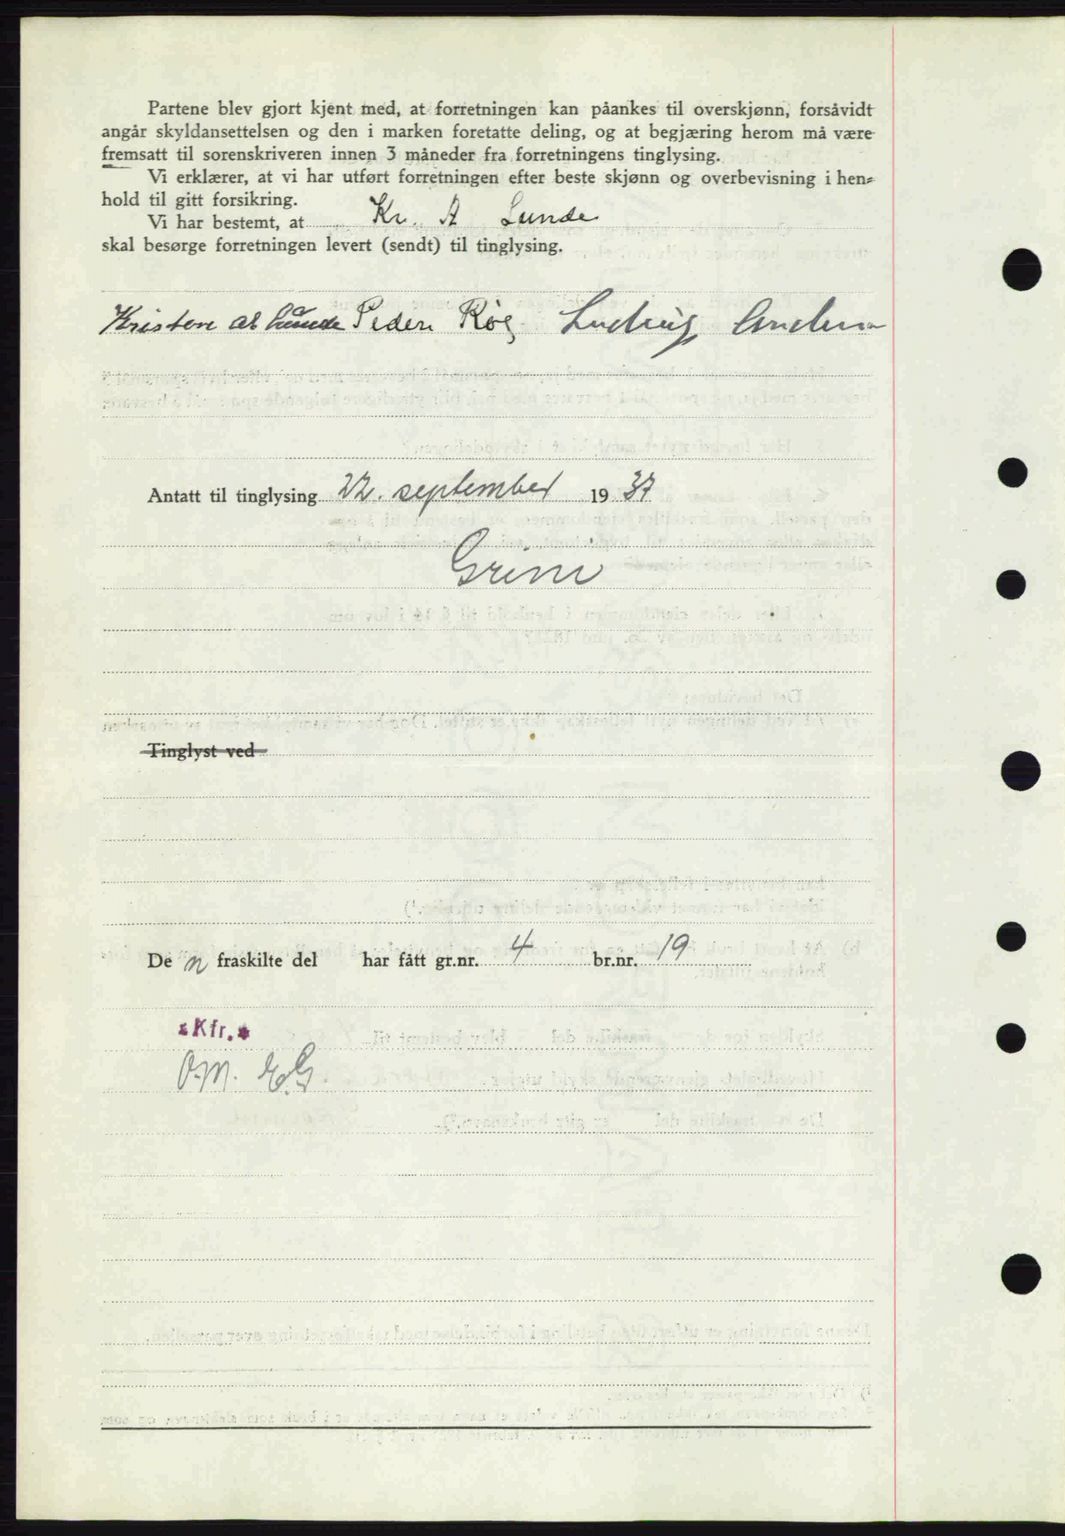 Partene blev gjort kjent med, at forretningen kan påankes til overskjønn, forsåvidt
angår skyldansettelsen og den i marken foretatte deling, og at begjæring herom må være
fremsatt til sorenskriveren innen 3 måneder fra forretningens tinglysing.
Vi erklærer, at vi har utført forretningen efter beste skjønn og overbevisning i hen-
hold til gitt forsikring.
Vi har bestemt, at Kr. A Lunde
skal besørge forretningen levert (sendt) til tinglysing.
Kristen Peder Røg Ludvig
Antatt til tinglysing 22. september 1937
Grim
Tinglyst ved
De n fraskilte del har fått gr.nr. 4 br.nr. 19
Kfr.
O.M. E.G